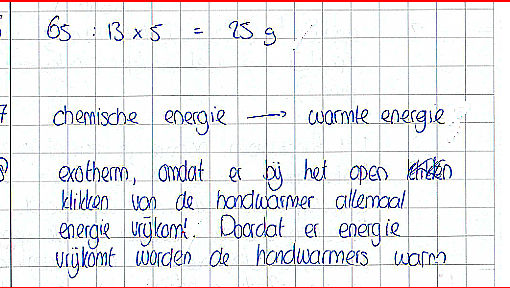 65 : 13 x 5 = 25 g
7 chemische energie → warmte energie
8 exotherm, omdat er bij het open
klikken van de handwarmer allemaal
energie vrijkomt. Doordat er energie
vrijkomt worden de handwarmers warm